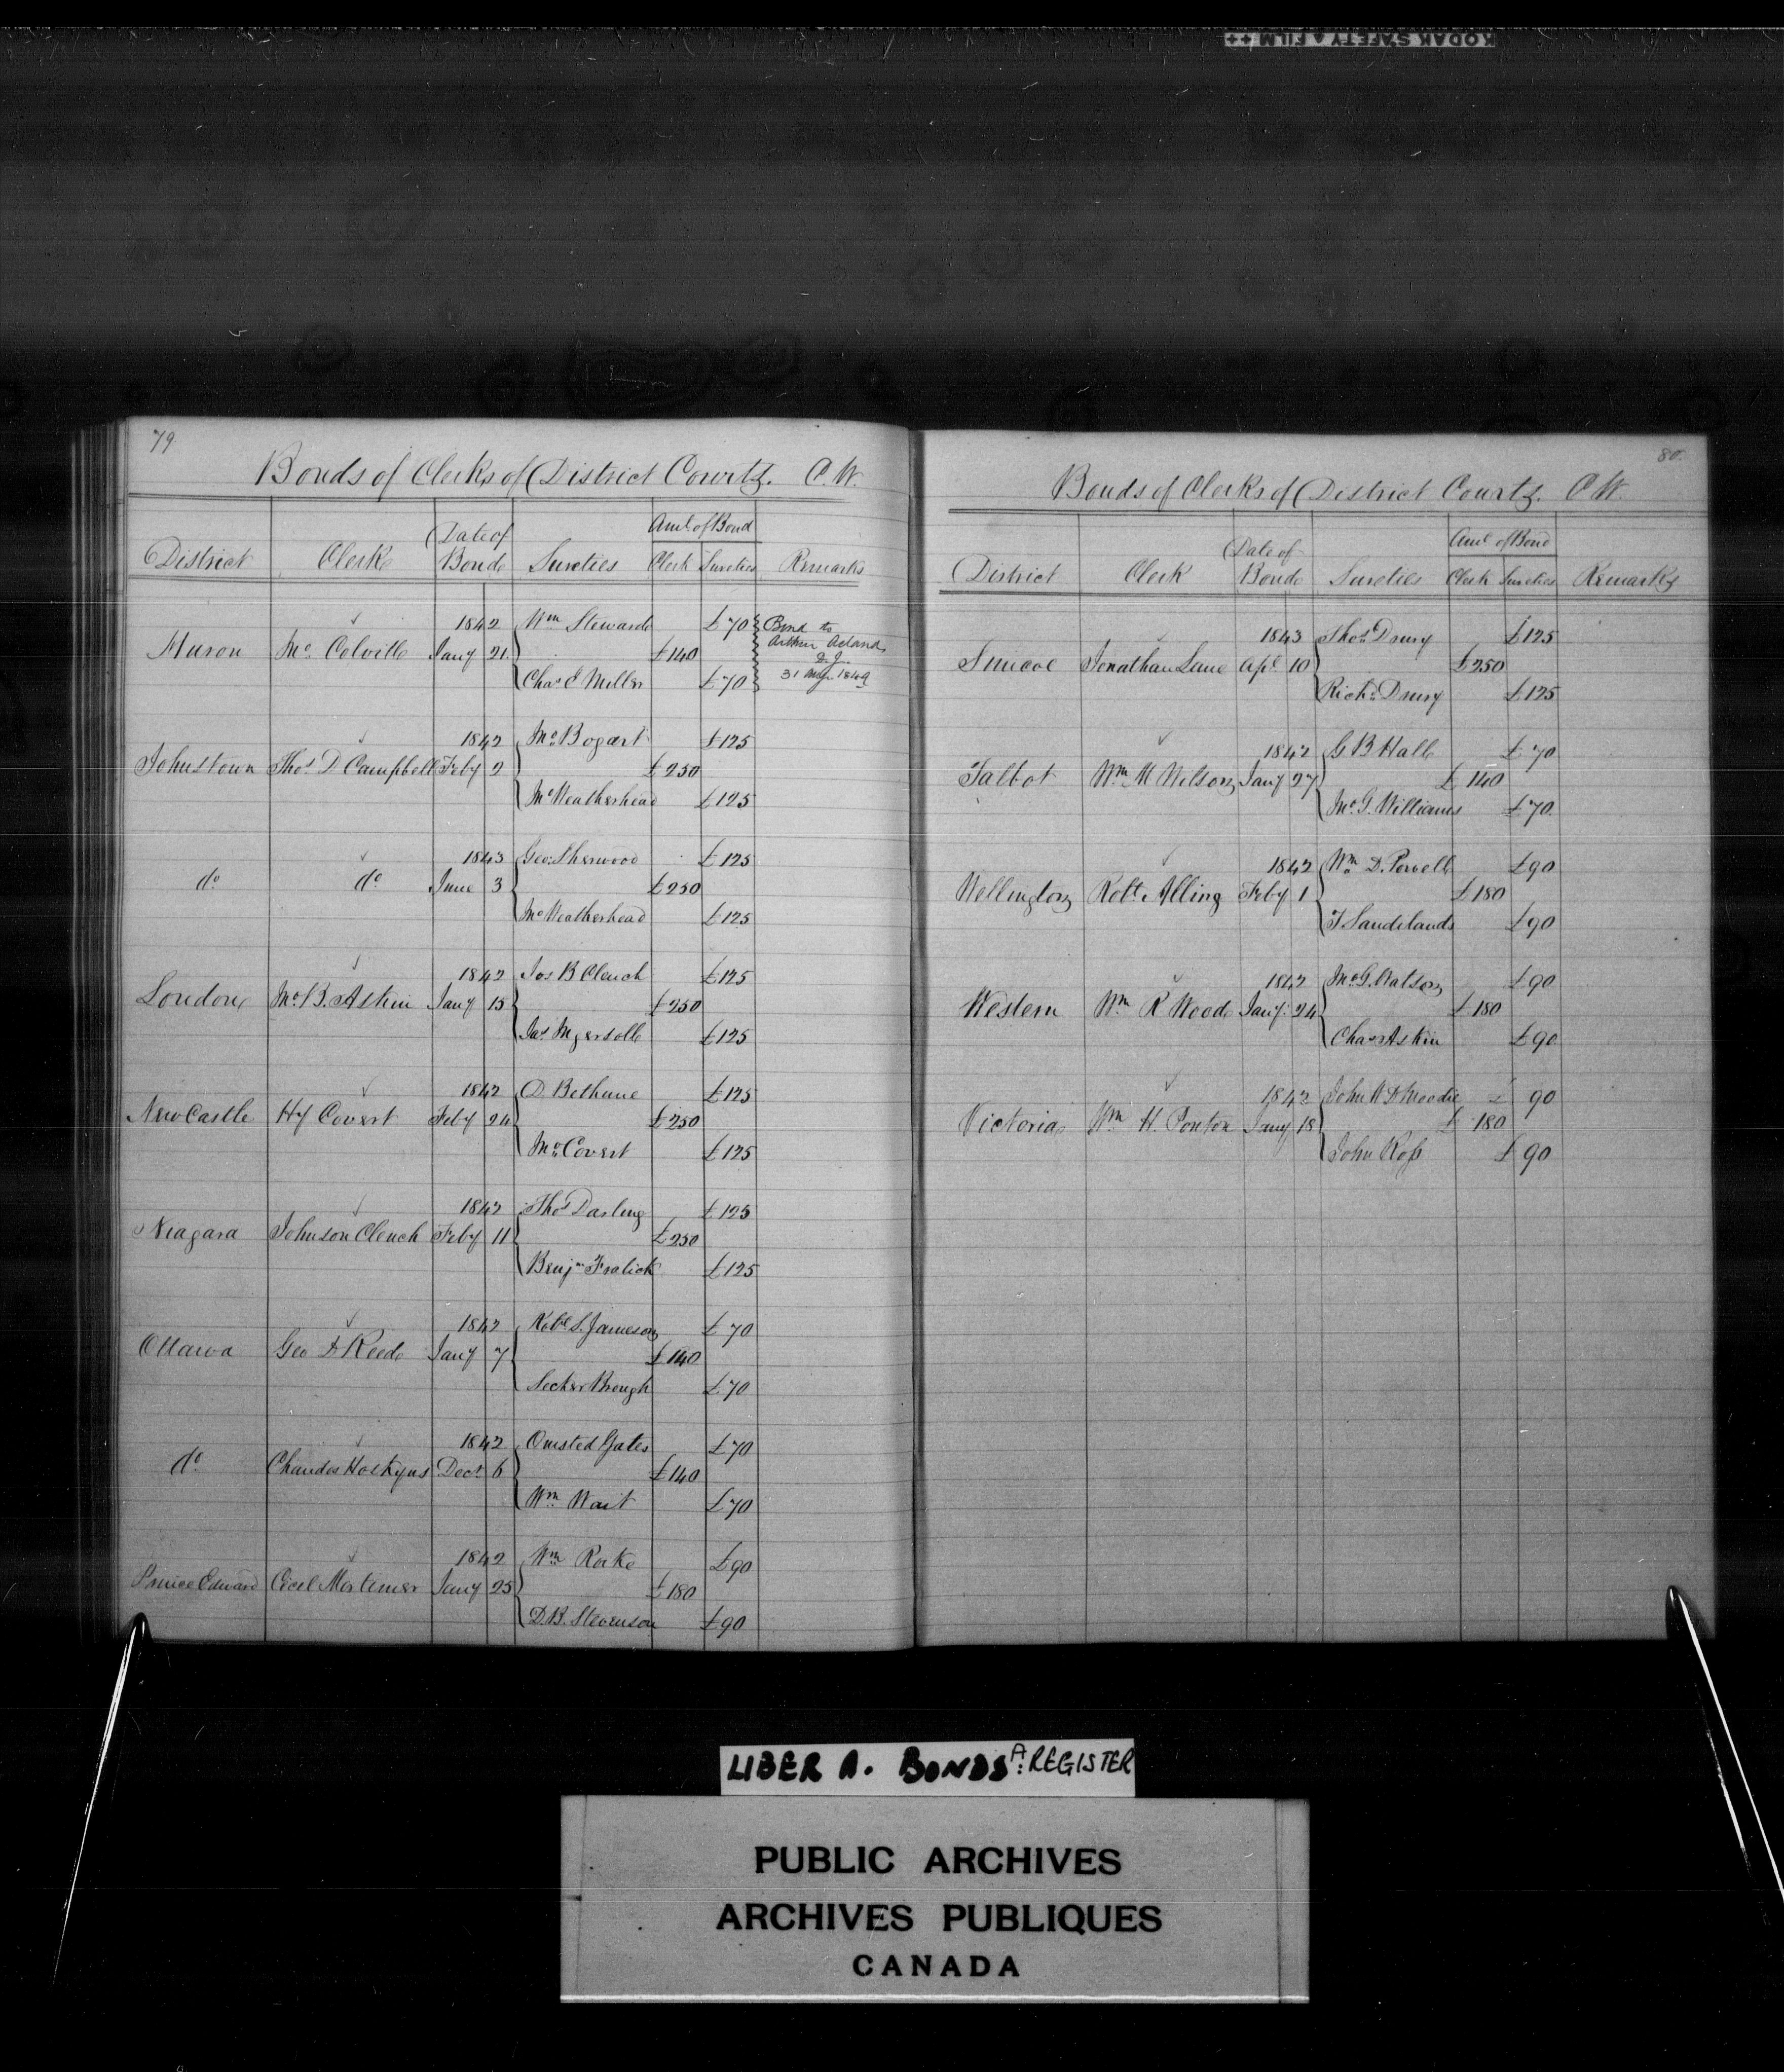 KODAK SAFETY A FILM ++
79
Bonds of Clerks of District Courts. C. W.
Amt. of Bond
District Clerk Date of Bond Sureties Clerk Sureties Remarks
1842 Wm Steward £70 Bond to
Huron Jno Colville Jany 21 £140 Arthur Acland
D. J.
Chas Miller £70 31 May 1849
1842 Jno Bogart £125
Johnstown Thos D Campbell Feby 2 £250
Jno Weatherhead £125
1843 Geo. Sherwood £125
do do June 3 £250
Jno Weatherhead £125
1842 Jos B Clench £125
London Jno B. Askin Jany 15 £250
Jas Ingersoll £125
1842 D Bethune £125
New Castle Hy Covert Feby 24 £250
Jno Covert £125
1842 Thos Darling £125
Niagara Johnson Clench Feby 11 £250
Benjn Fralick £125
1842 Robt S. Jameson £70
Ottawa Geo D Reed Jany 7 £140
Secker Brough £70
1842 Omsted Gates £70
do Chandos Hoskyns Decr 6 £140
Wm Wait £70
1842 Wm Rorke £90
Prince Edward Cecil Mortimer Jany 25 £180
D.B. Stevenson £90
80.
Bonds of Clerks of District Courts. C W.
Amt of Bond
District Clerk Date of Bond Sureties Clerk Sureties Remarks
1843 Thos Drury £125
Simcoe Jonathan Lane Apl 10 £250
Richd Drury £125
1842 G B Hall £70
Talbot Wm M Wilson Jany 27 £140
Jno G. Williams £70
1842 Wm D. Powell £90
Wellington Robt Alling Feby 1 £180
T Sandilands £90
1842 Jno G. Watson £90
Western Wm R Wood Jany 24 £180
Chas Askin £90
1842 John W D Moodie £90
Victoria Wm H. Ponton Jany 18 £180
John Ross £90
LIBER A. BONDS: A REGISTER
PUBLIC ARCHIVES
ARCHIVES PUBLIQUES
CANADA